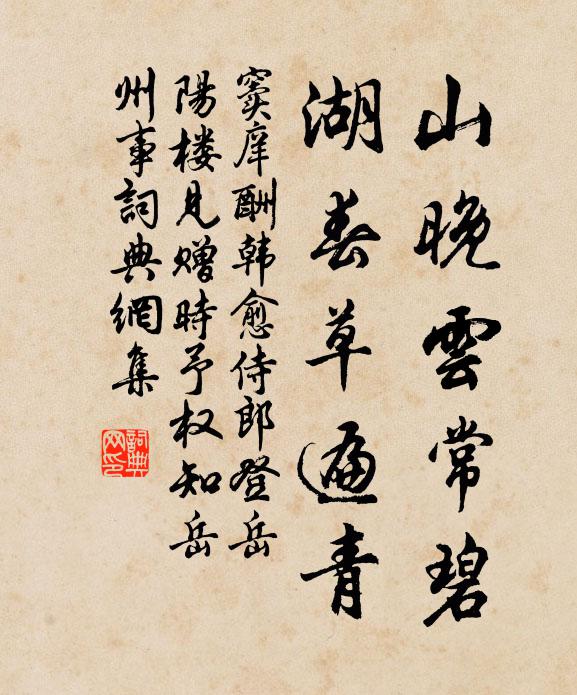 山晚雲常碧
湖春草遍青
窦庠酬韩愈侍郎登岳
陽楼見赠時予权知岳
州事詞典網集
詞典
网印